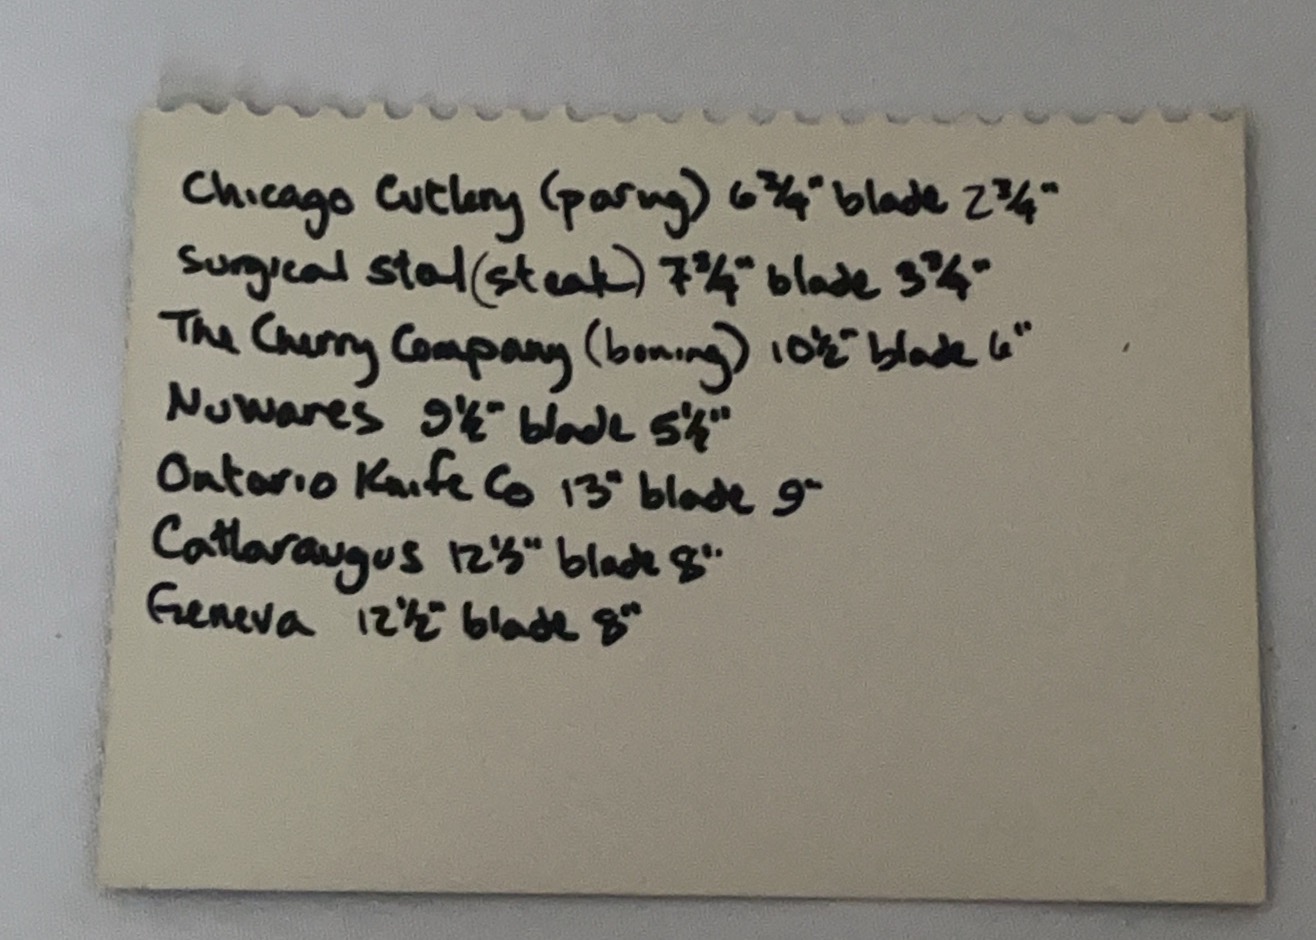 Chicago Cutlery (paring) 6 3/4" blade 2 3/4"
Surgical steel (steak) 7 3/4" blade 3 3/4"
The Cherry Company (boning) 10 1/2" blade 6"
Nuwares 9 1/2" blade 5 1/2"
Ontario Knife Co 13" blade 9"
Cattaraugus 12 1/3" blade 8"
Geneva 12 1/2" blade 8"